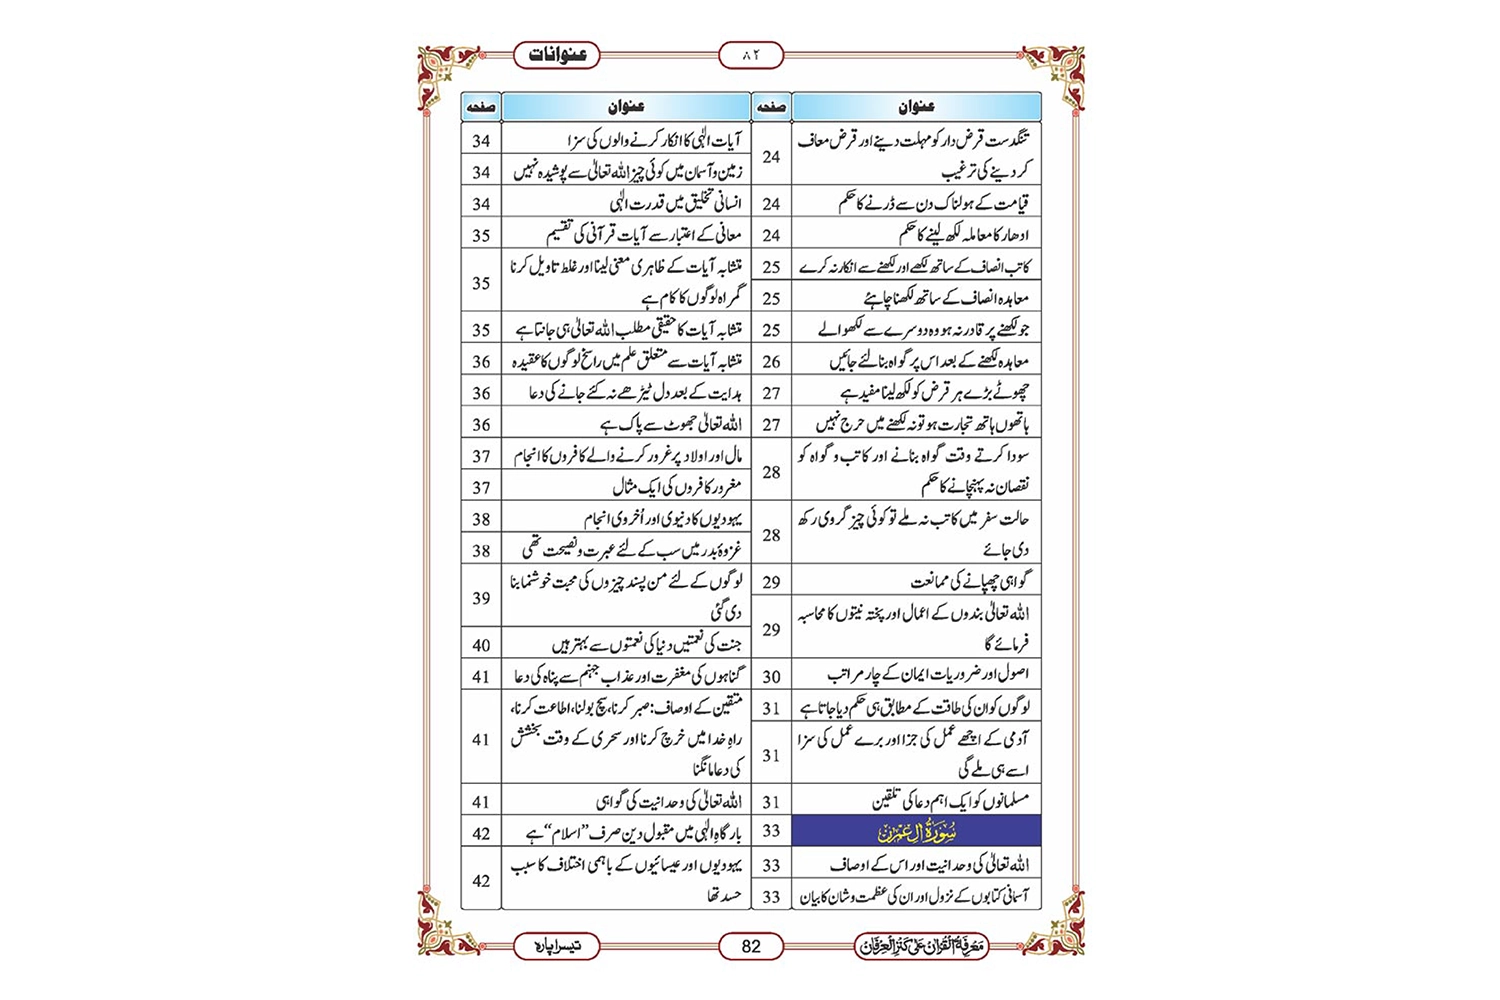 عنوانات
۸۲
عنوان صفحہ
تنگدست قرض دار کو مہلت دینے اور قرض معاف
کر دینے کی ترغیب 24
قیامت کے ہولناک دن سے ڈرنے کا حکم 24
ادھار کا معاملہ لکھ لینے کا حکم 24
کاتب انصاف کے ساتھ لکھے اور لکھنے سے انکار نہ کرے 25
معاہدہ انصاف کے ساتھ لکھنا چاہئے 25
جو لکھنے پر قادر نہ ہو وہ دوسرے سے لکھوا لے 25
معاہدہ لکھنے کے بعد اس پر گواہ بنا لئے جائیں 26
چھوٹے بڑے ہر قرض کو لکھ لینا مفید ہے 27
ہاتھوں ہاتھ تجارت ہو تو نہ لکھنے میں حرج نہیں 27
سودا کرتے وقت گواہ بنانے اور کاتب و گواہ کو
نقصان نہ پہنچانے کا حکم 28
حالت سفر میں کاتب نہ ملے تو کوئی چیز گروی رکھ
دی جائے 28
گواہی چھپانے کی ممانعت 29
اللہ تعالیٰ بندوں کے اعمال اور پختہ نیتوں کا محاسبہ
فرمائے گا 29
اصول اور ضروریات ایمان کے چار مراتب 30
لوگوں کو ان کی طاقت کے مطابق ہی حکم دیا جاتا ہے 31
آدمی کے اچھے عمل کی جزا اور برے عمل کی سزا
اسے ہی ملے گی 31
مسلمانوں کو ایک اہم دعا کی تلقین 31
سُوْرَةُ اٰلِ عِمْرٰن 33
اللہ تعالیٰ کی وحدانیت اور اس کے اوصاف 33
آسمانی کتابوں کے نزول اور ان کی عظمت و شان کا بیان 33
عنوان صفحہ
آیات الٰہی کا انکار کرنے والوں کی سزا 34
زمین و آسمان میں کوئی چیز اللہ تعالیٰ سے پوشیدہ نہیں 34
انسانی تخلیق میں قدرت الٰہی 34
معانی کے اعتبار سے آیات قرآنی کی تقسیم 35
متشابہ آیات کے ظاہری معنی لینا اور غلط تاویل کرنا
گمراہ لوگوں کا کام ہے 35
متشابہ آیات کا حقیقی مطلب اللہ تعالیٰ ہی جانتا ہے 35
متشابہ آیات سے متعلق علم میں راسخ لوگوں کا عقیدہ 36
ہدایت کے بعد دل ٹیڑھے نہ کئے جانے کی دعا 36
اللہ تعالیٰ جھوٹ سے پاک ہے 36
مال اور اولاد پر غرور کرنے والے کافروں کا انجام 37
مغرور کافروں کی ایک مثال 37
یہودیوں کا دنیوی اور اُخروی انجام 38
غزوۂ بدر میں سب کے لئے عبرت و نصیحت تھی 38
لوگوں کے لئے من پسند چیزوں کی محبت خوشنما بنا
دی گئی 39
جنت کی نعمتیں دنیا کی نعمتوں سے بہتر ہیں 40
گناہوں کی مغفرت اور عذاب جہنم سے پناہ کی دعا 41
متقین کے اوصاف: صبر کرنا، سچ بولنا، اطاعت کرنا،
راہِ خدا میں خرچ کرنا اور سحری کے وقت بخشش
کی دعا مانگنا 41
اللہ تعالیٰ کی وحدانیت کی گواہی 41
بارگاہِ الٰہی میں مقبول دین صرف “اسلام” ہے 42
یہودیوں اور عیسائیوں کے باہمی اختلاف کا سبب
حسد تھا 42
مَعْرِفَةُ الْقُرْاٰنْ عَلٰی كَنْزِ الْعِرْفَانْ
82
تیسرا پارہ